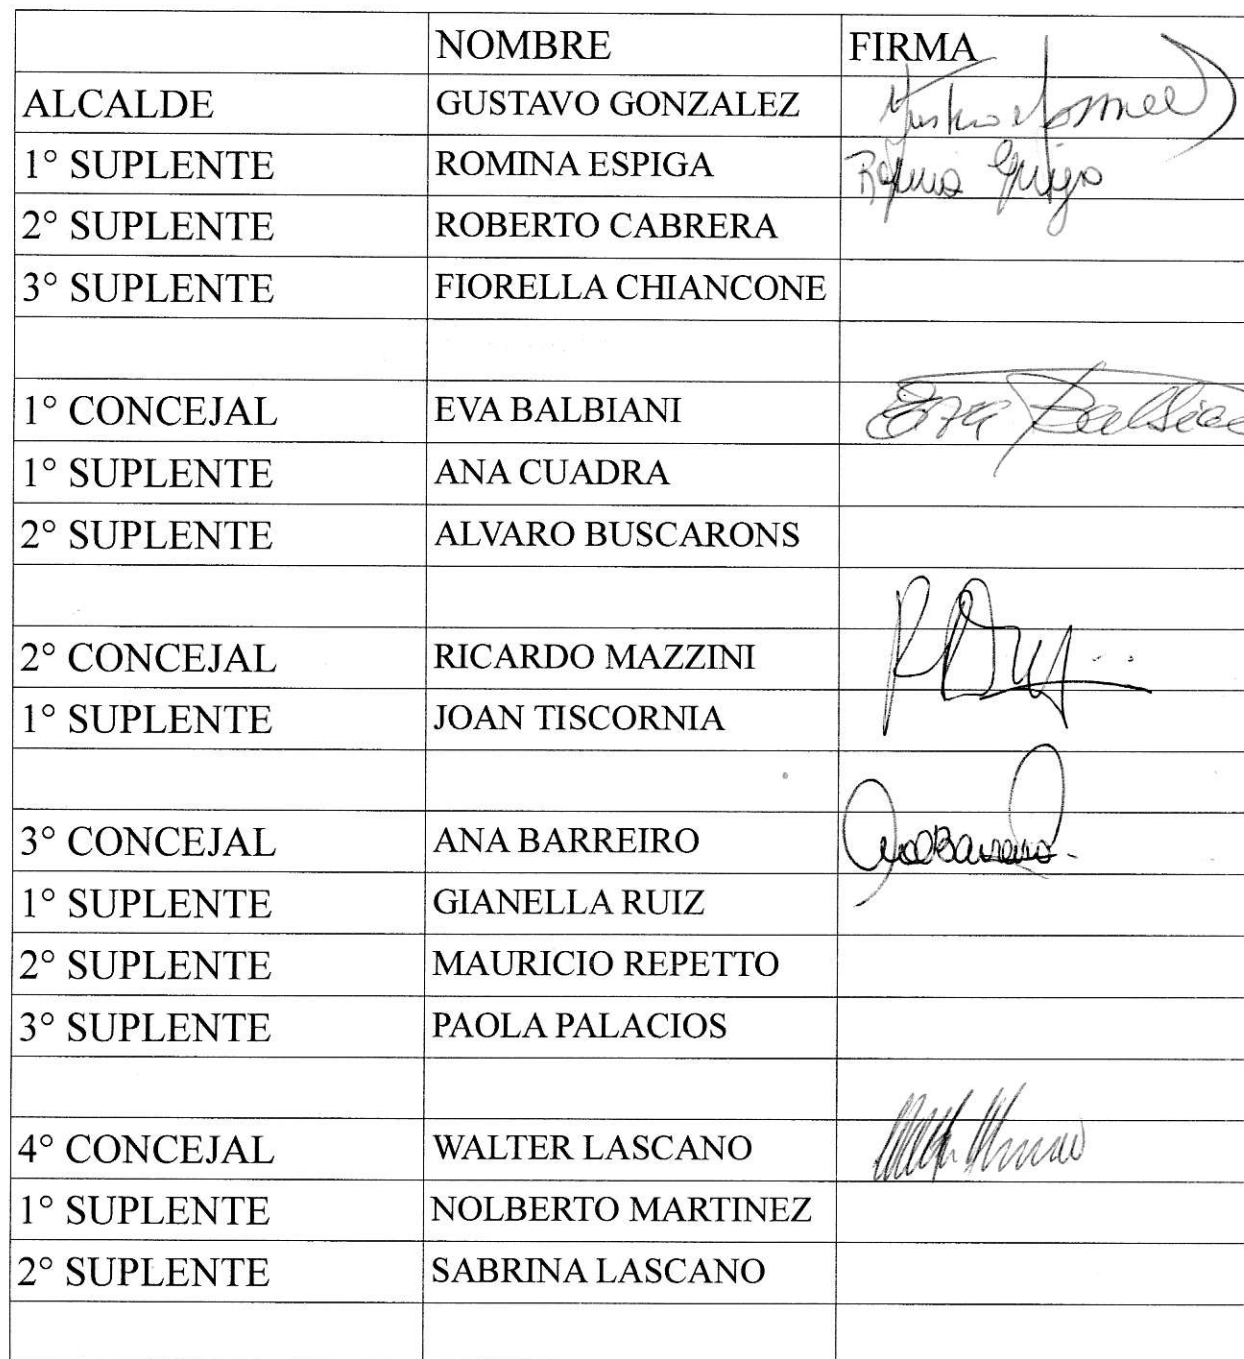 NOMBRE FIRMA
ALCALDE GUSTAVO GONZALEZ
1° SUPLENTE ROMINA ESPIGA Romina Espiga
2° SUPLENTE ROBERTO CABRERA
3° SUPLENTE FIORELLA CHIANCONE
1° CONCEJAL EVA BALBIANI Eva
1° SUPLENTE ANA CUADRA
2° SUPLENTE ALVARO BUSCARONS
2° CONCEJAL RICARDO MAZZINI
1° SUPLENTE JOAN TISCORNIA
3° CONCEJAL ANA BARREIRO Ana Barreiro
1° SUPLENTE GIANELLA RUIZ
2° SUPLENTE MAURICIO REPETTO
3° SUPLENTE PAOLA PALACIOS
4° CONCEJAL WALTER LASCANO
1° SUPLENTE NOLBERTO MARTINEZ
2° SUPLENTE SABRINA LASCANO